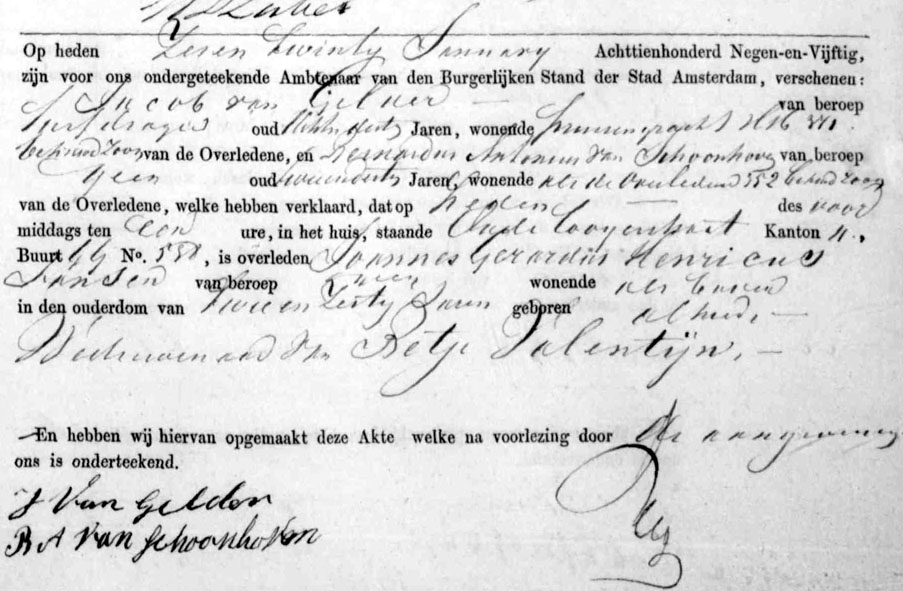 Op heden Zeven Twintig January Achttienhonderd Negen-en-Vijftig,
zijn voor ons ondergeteekende Ambtenaar van den Burgerlijken Stand der Stad Amsterdam, verschenen:
Jacob van Gelder — van beroep
turfdrager oud Jaren, wonende
behuwd Zoon van de Overledene, en Bernardus Antonius van Schoonhoven van beroep
Geen oud Jaren, wonende als de Overledene 552 behuwd Zoon
van de Overledene, welke hebben verklaard, dat op heden — des voor
middags ten Een ure, in het huis, staande Kanton 4.,
Buurt GG No. 558, is overleden Joannes Gerardus Henricus
Jansen van beroep Geen wonende als boven
in den ouderdom van Twee en Zestig Jaren geboren alhier, —
Weduwenaar van Betje Valentijn. —
En hebben wij hiervan opgemaakt deze Akte welke na voorlezing door de aangevers
ons is onderteekend.
J Van Gelder
B A Van Schoonhoven